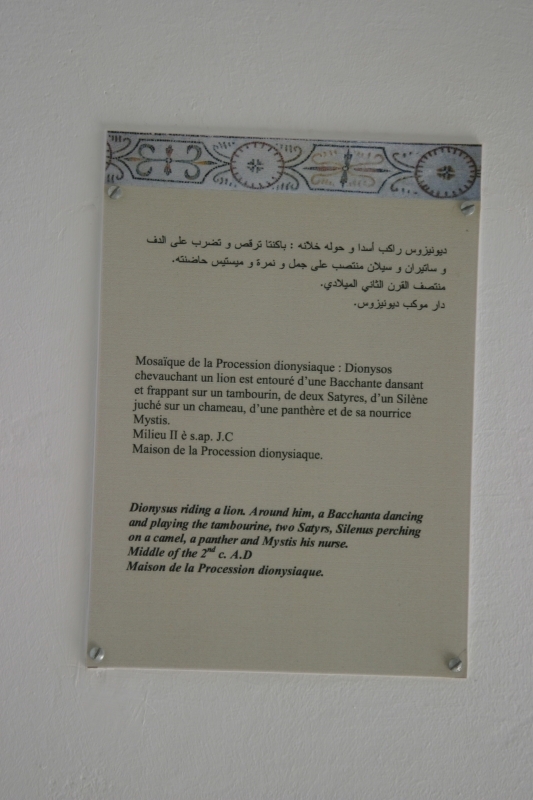 ديونيزوس راكب أسدا و حوله خلانه : باكنتا ترقص و تضرب على الدف
و ساتيران و سيلان منتصب على جمل و نمرة و ميستيس حاضنته.
منتصف القرن الثاني الميلادي.
دار موكب ديونيزوس.
Mosaïque de la Procession dionysiaque : Dionysos
chevauchant un lion est entouré d’une Bacchante dansant
et frappant sur un tambourin, de deux Satyres, d’un Silène
juché sur un chameau, d’une panthère et de sa nourrice
Mystis.
Milieu II è s.ap. J.C
Maison de la Procession dionysiaque.
Dionysus riding a lion. Around him, a Bacchanta dancing
and playing the tambourine, two Satyrs, Silenus perching
on a camel, a panther and Mystis his nurse.
Middle of the 2nd c. A.D
Maison de la Procession dionysiaque.